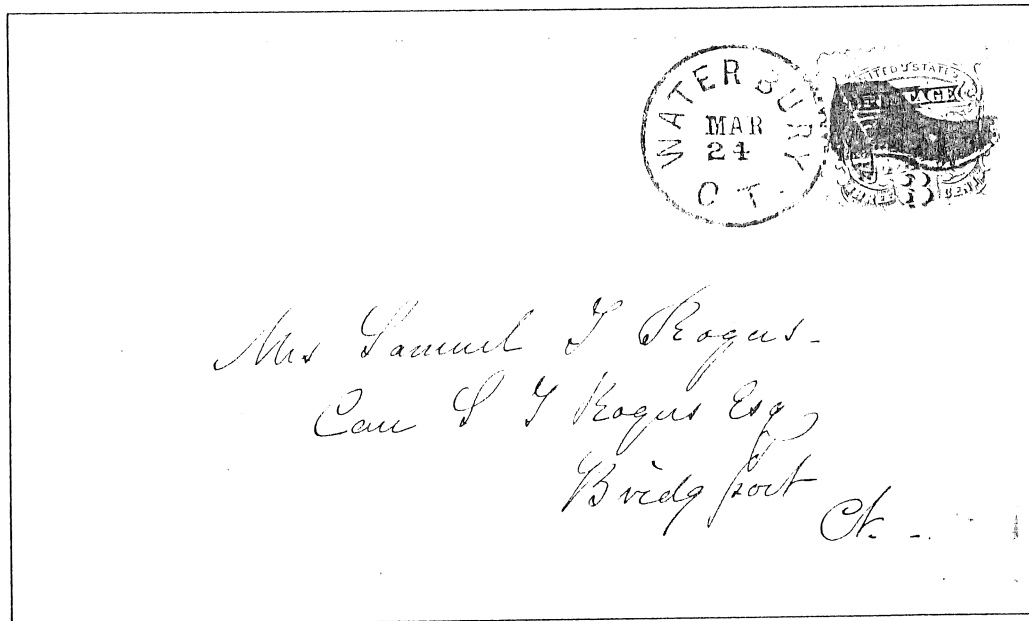 WATERBURY
MAR
24
CT.
UNITED STATES
POSTAGE
THREE 3 CENTS
Mrs Samuel T Rogers -
Care S T Rogers Esq
Bridgport
Ct. -